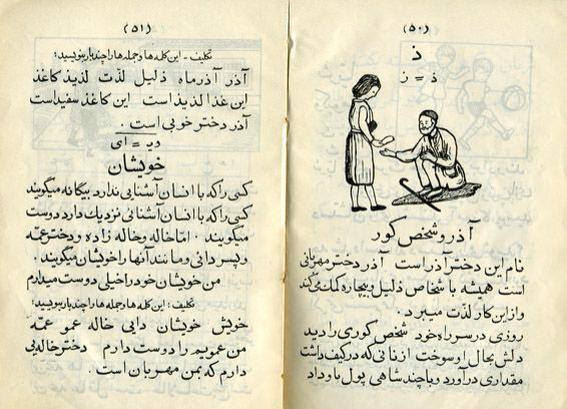 (۵۰)
ذ
ذ = ز
آذر و شخص کور
نام این دختر آذر است آذر دختر مهربانی
است همیشه با شخاص ذلیل و بیچاره کمک می‌کند
و از این کار لذّت میبرد.
روزی در سر راه خود شخص کوری را دید
دلش بحال او سوخت از نانی که در کیف داشت
مقداری در آورد و با چند شاهی پول با و داد
(۵۱)
تکلیف - این کلمه ها و جمله ها را چند بار بنویسید:
آذر آذر ماه ذلیل لذّت لذیذ کاغذ
این غذا لذیذ است این کاغذ سفید است
آذر دختر خوبی است.
= ای
خویشان
کسی را که با انسان آشنایی ندارد بیگانه میگویند
کسی را که با انسان آشنائی نزدیک دارد دوست
میگویند. امّا خاله و خاله زاده و دختر عمّه
و پسر دائی و مانند آنها را خویشان میگویند.
من خویشان خود را خیلی دوست میدارم
تکلیف: این کلمه ها و جمله ها را چند بار بنویسید:
خویش خویشان دایی خاله عمو عمّه
من عمویم را دوست دارم دختر خاله‌یی
دارم که بمن مهربان است.